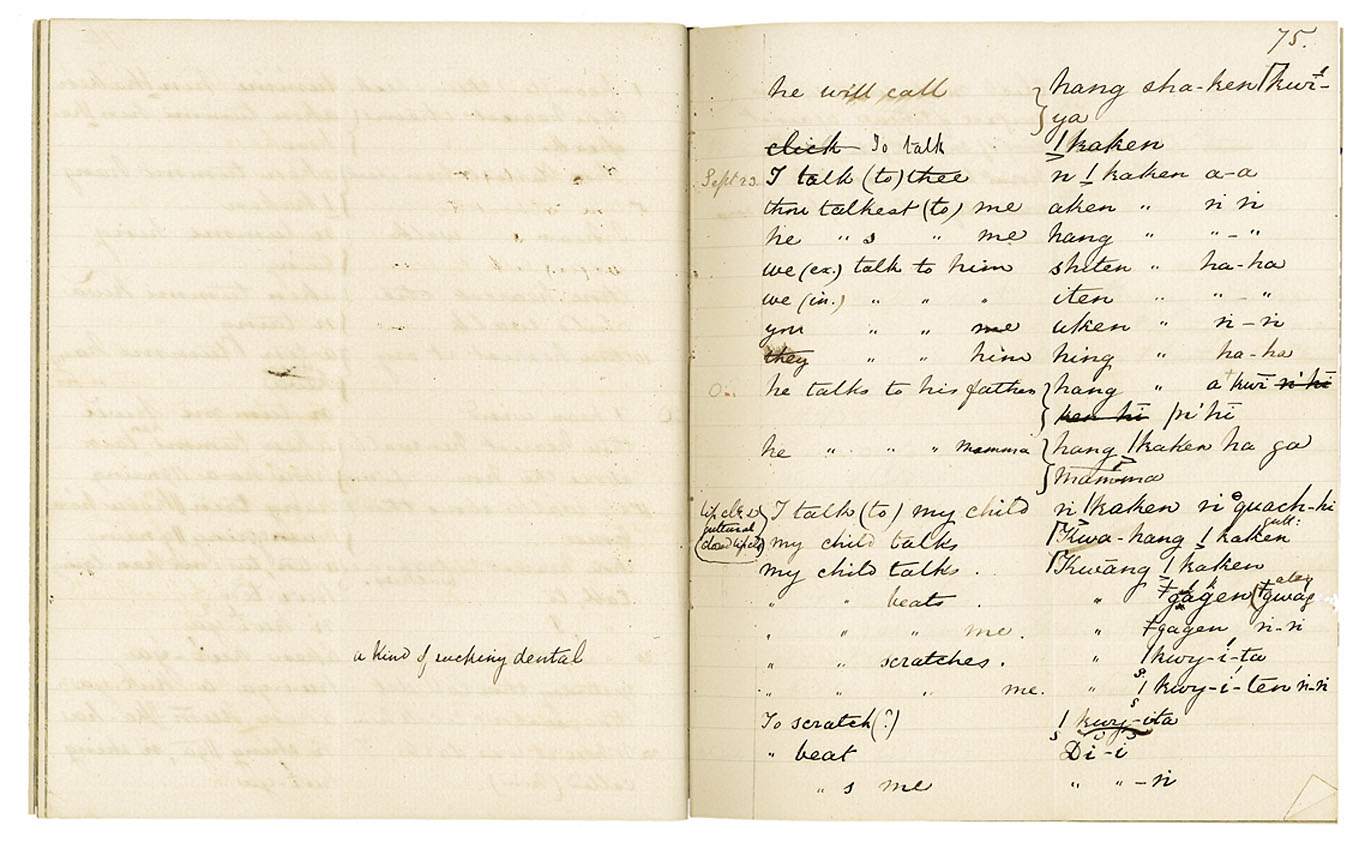 a kind of sucking dental
75.
he will call hang sha-ken ⌈kwī-
ya
click To talk !kaken
Sept 23. I talk (to) thee n !kaken a-a
thou talkest (to) me aken " n n
he " s " me hang " " - "
we (ex.) talk to him shiten " ha-ha
we (in.) " " " iten " " - "
you " " me uken " n - n
they " " him hing " ha-ha
he talks to his father hang " a kwī n' hī
ken hī |n' hī
he " " " mamma hang !kaken ha ga
mamma
I talk (to) my child n !kaken n guach-hi
gutteral my child talks ⌈Kwa-hang !kaken
my child talks. ⌈Kwāng !kaken
" " beats. " ǂgagen
" " " me. " ǂgagen n-n
" " scratches. " |kwy-i-ta
" " " me. " |kwy-i-ten n-n
To scratch (?) | kwy-ita
" beat Di-i
" s me " " - n